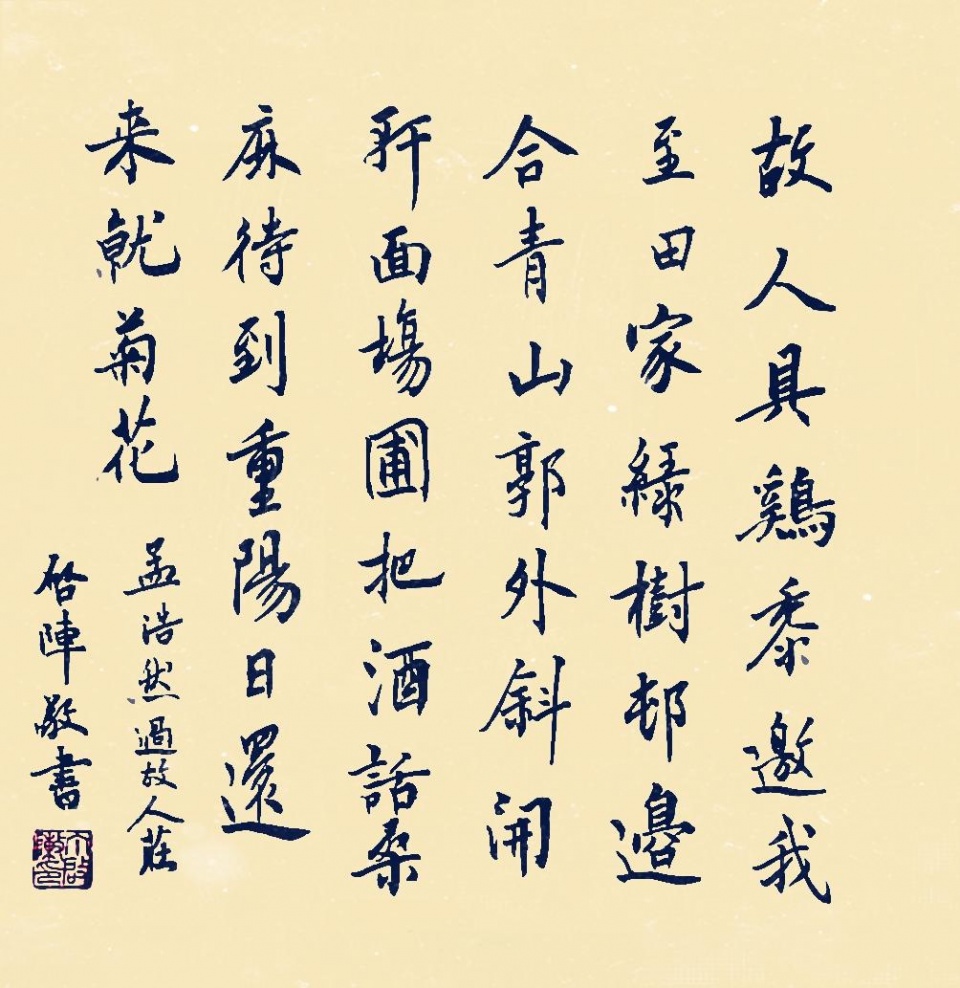 故人具鷄黍邀我
至田家綠樹邨邊
合青山郭外斜開
軒面塲圃把酒話桑
麻待到重陽日還
来就菊花
孟浩然過故人莊
啓陣敬書